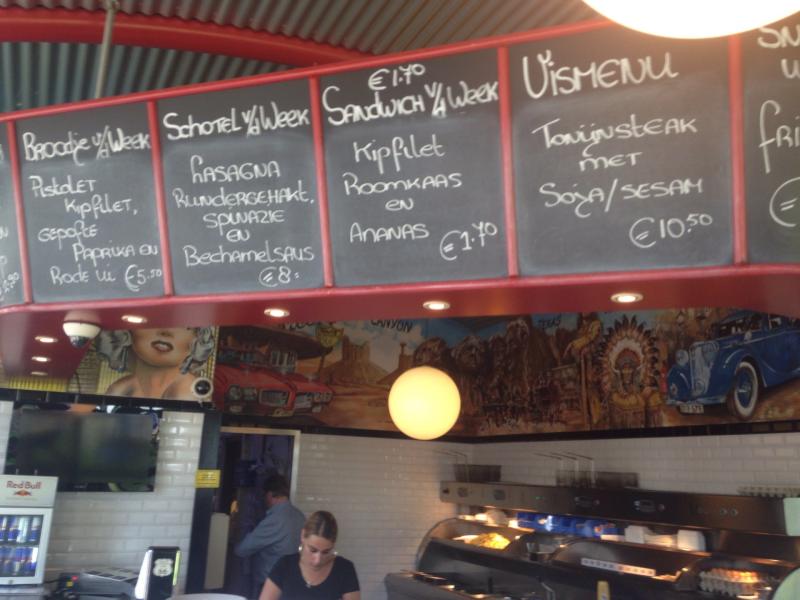 Broodje v/d Week
Pistolet
Kipfilet,
gepofte
Paprika en
Rode Ui €5.50
Schotel v/d Week
Lasagna
Rundergehakt,
Spinazie
en
Bechamelsaus
€8:
€1.70
Sandwich v/d Week
Kipfilet
Roomkaas
en
Ananas
€1.70
Vismenu
Tonijnsteak
met
Soja/sesam
€10.50
CANYON
TEXAS
Red Bull
66